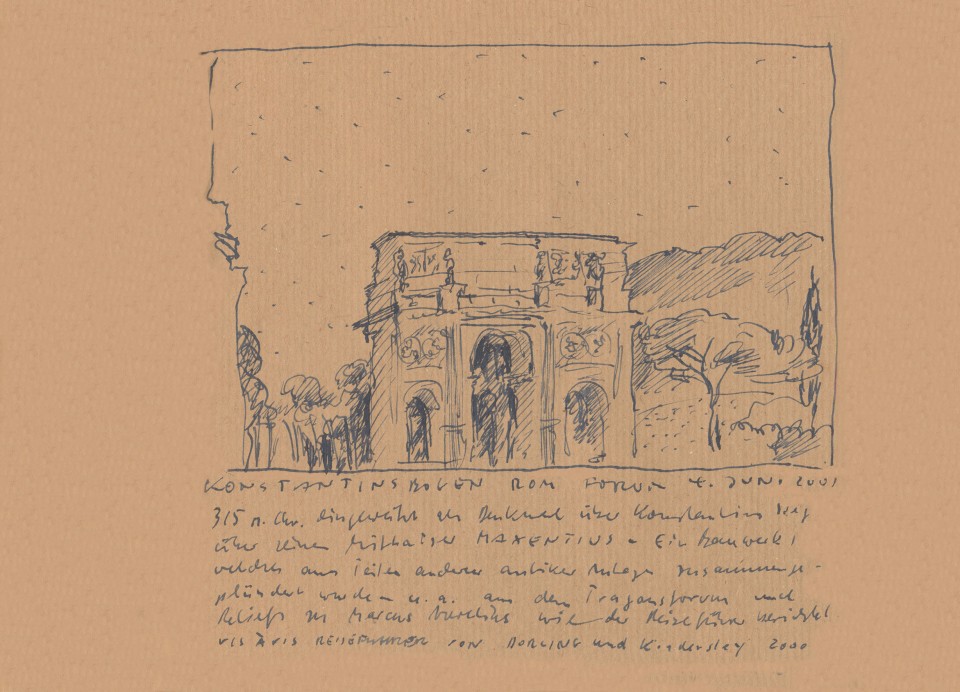 KONSTANTINSBOGEN ROM FORUM 4. JUNI 2001
315 n. Chr. eingeweiht als Denkmal über Konstantins Sieg
über seinen Mitkaiser MAXENTIUS - Ein Bauwerk,
welches aus Teilen anderer antiker Anlagen zusammenge-
plündert wurde - u.a. aus dem Trajansforum und
Reliefs zu Marcus Aurelius wie der Reiseführer berichtet
VIS À VIS REISEFÜHRER VON DORLING und Kindersley 2000